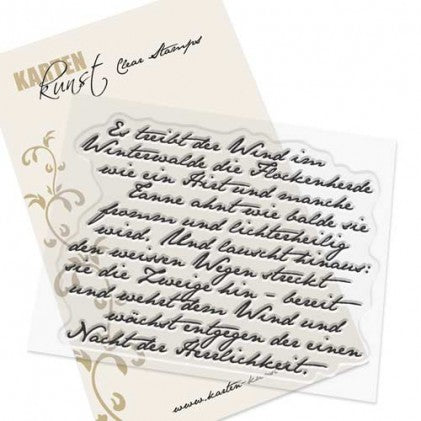 KARTEN
kunst
Clear Stamps
Es treibt der Wind im
Winterwalde die Flockenherde
wie ein Hirt und manche
Tanne ahnt wie balde sie
fromm und lichterheilig
wird. Und lauscht hinaus:
den weissen Wegen streckt
sie die Zweige hin – bereit
und wehrt dem Wind und
wächst entgegen der einen
Nacht der Herrlichkeit.